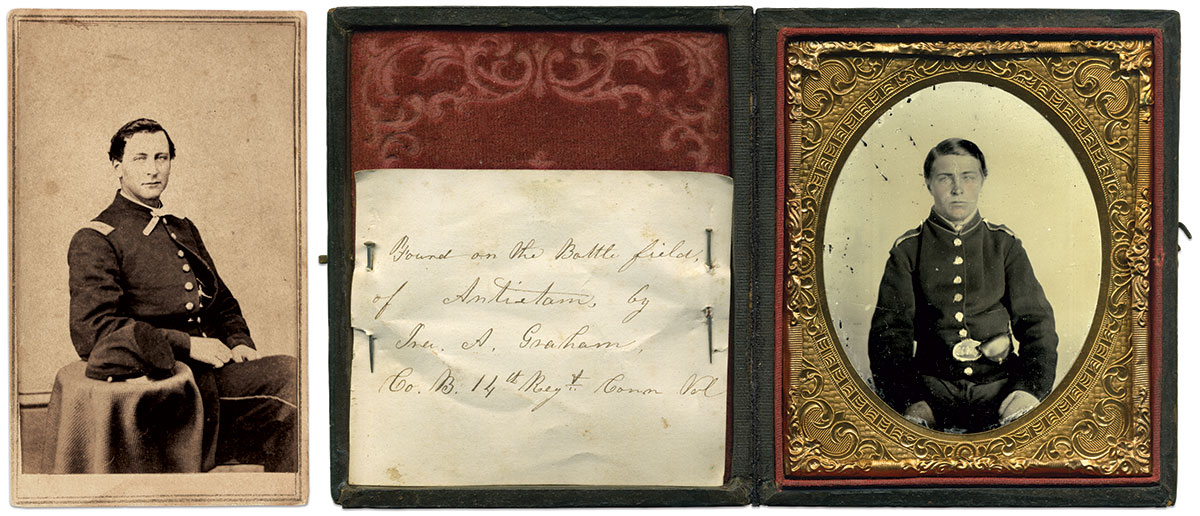 Found on the Battle field,
of Antietam, by
Ira. A. Graham,
Co. B. 14th Regt Conn Vol